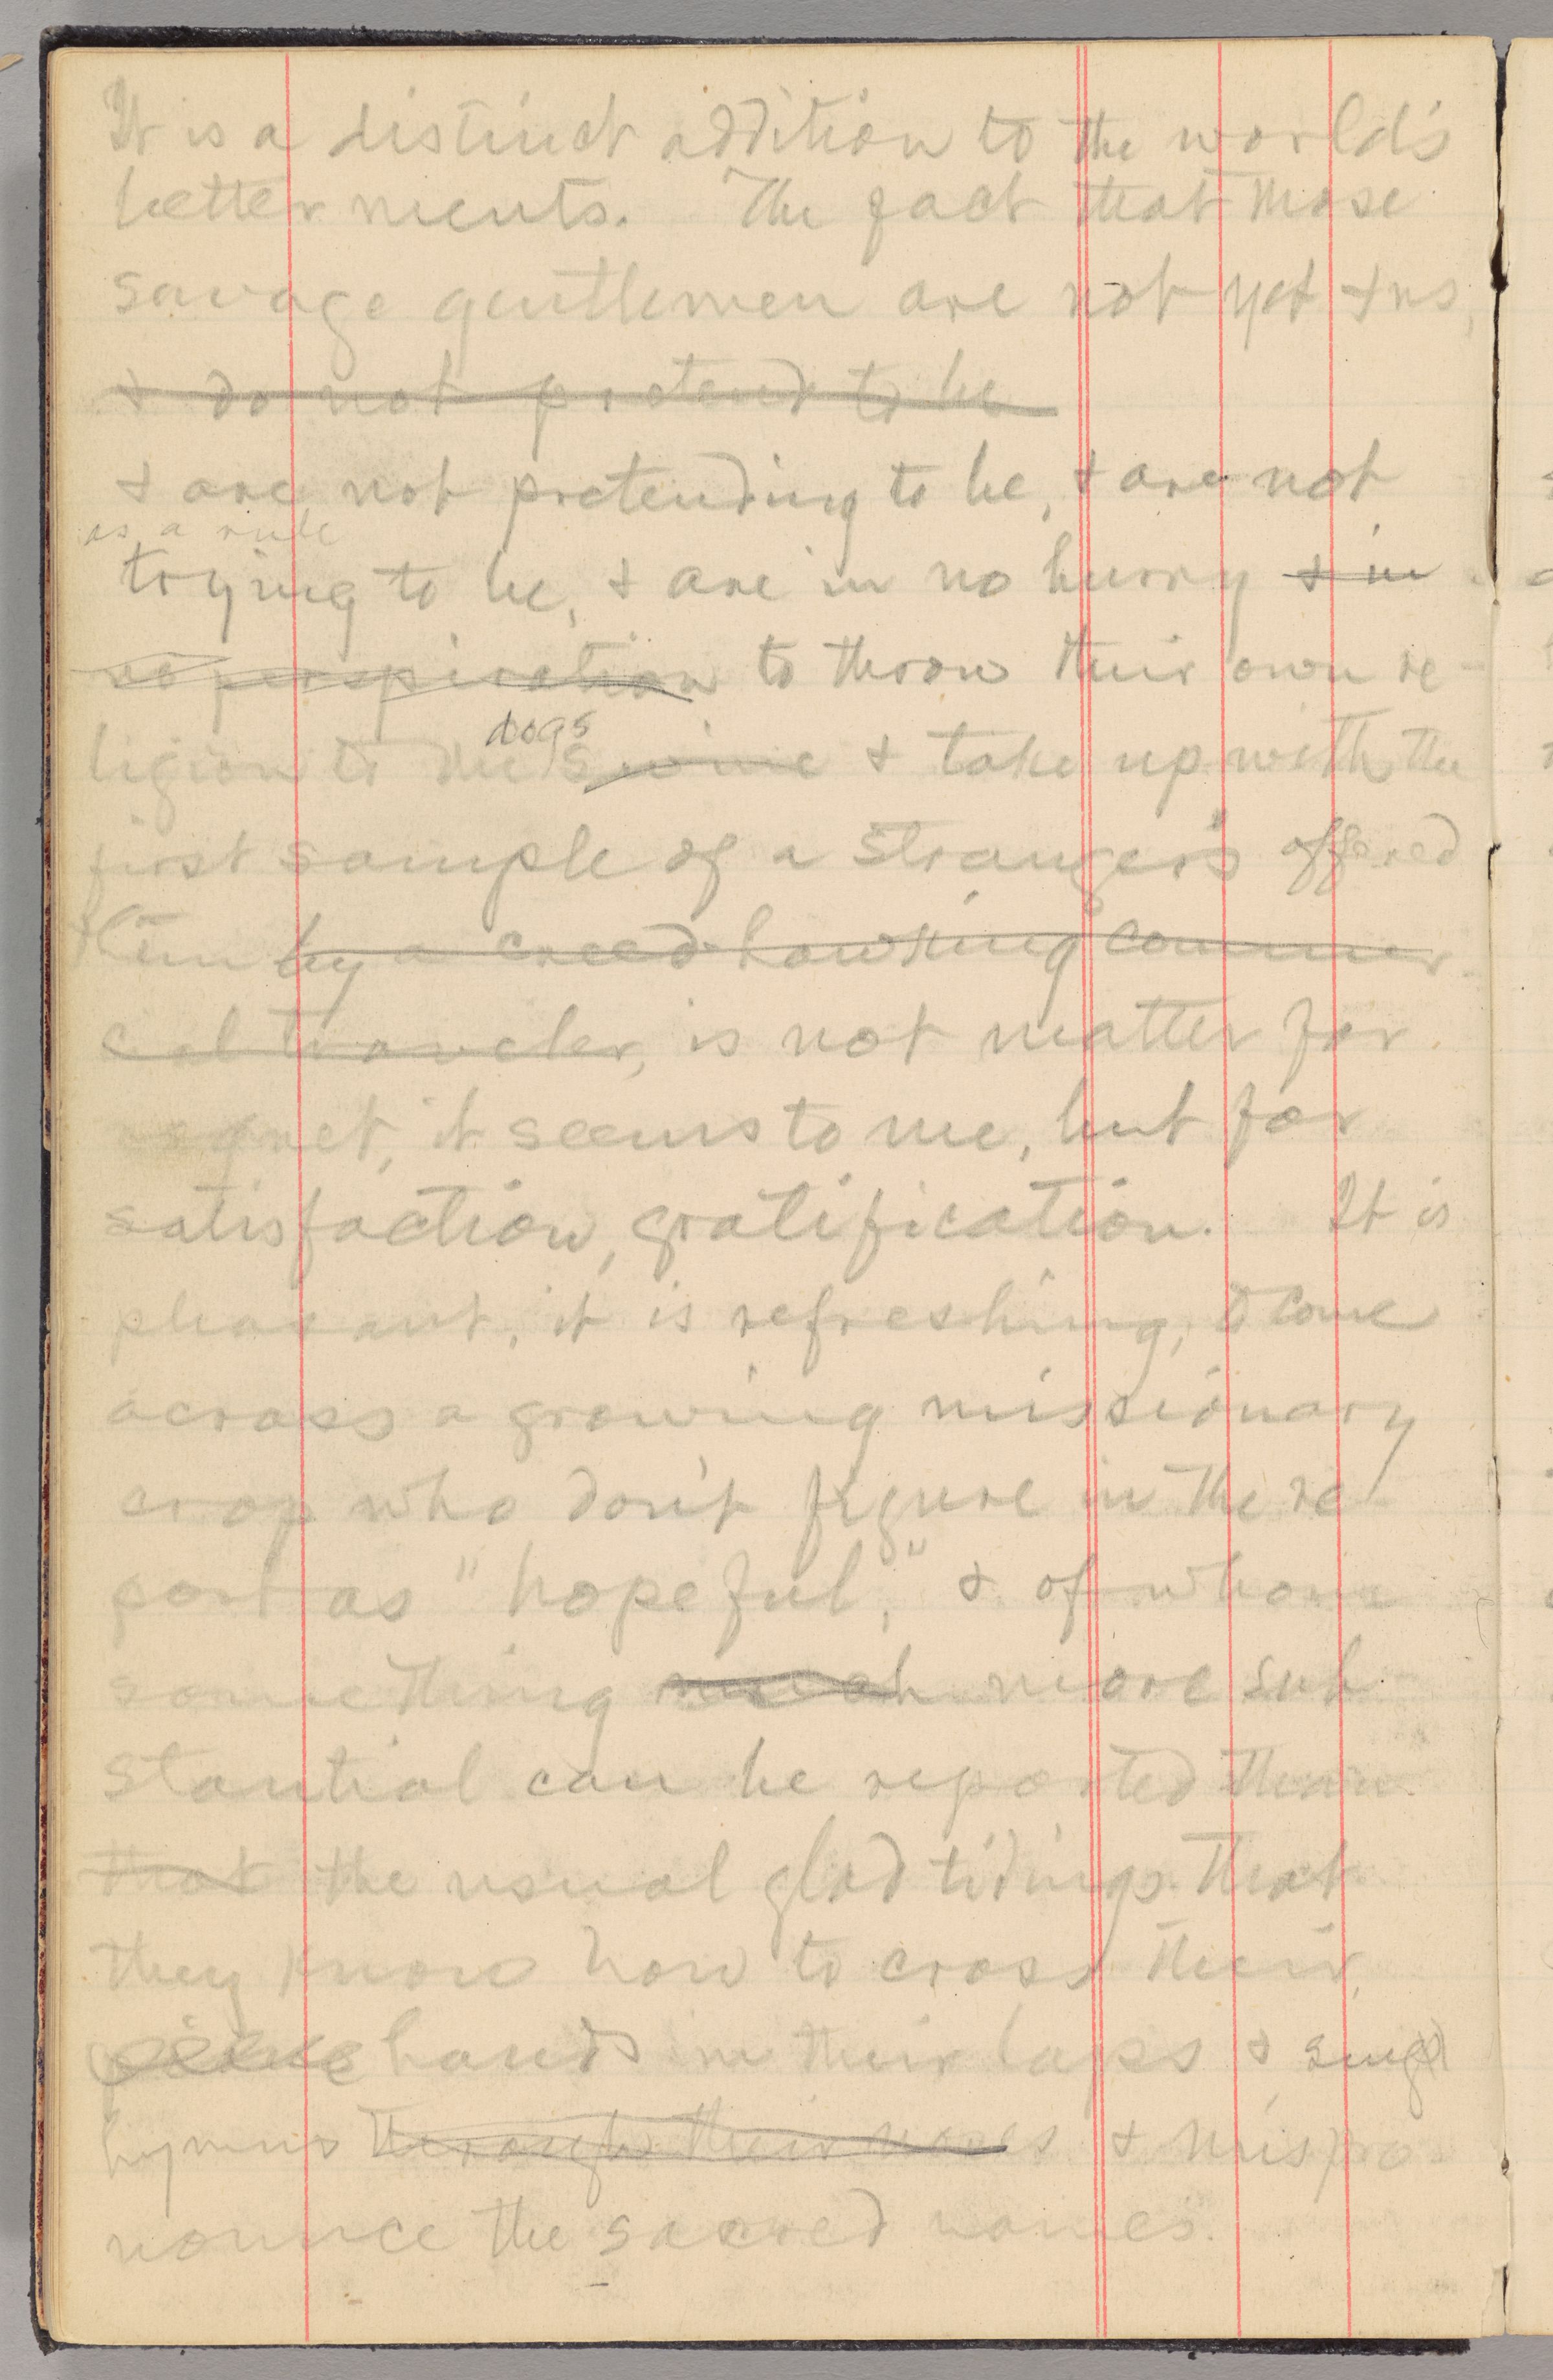 It is a distinct addition to the world's
betterments. The fact that those
savage gentlemen are not yet +ns,
& do not pretend to be
& are not pretending to be, & are not
as a rule
trying to be, & are in no hurry & in
no perspiration to throw their own re-
dogs
ligion to the swine & take up with the
first sample of a stranger's offered
them by a creed-hawking commer-
cial traveler, is not matter for
regret, it seems to me, but for
satisfaction, gratification. It is
pleasant, it is refreshing, to come
across a growing missionary
crop who don't figure in the re-
port as "hopeful," & of whom
something much more sub-
stantial can be reported than
that the usual glad tidings that
they know how to cross their
hands in their laps & sing
hymns through their noses & mispro-
nounce the sacred names.